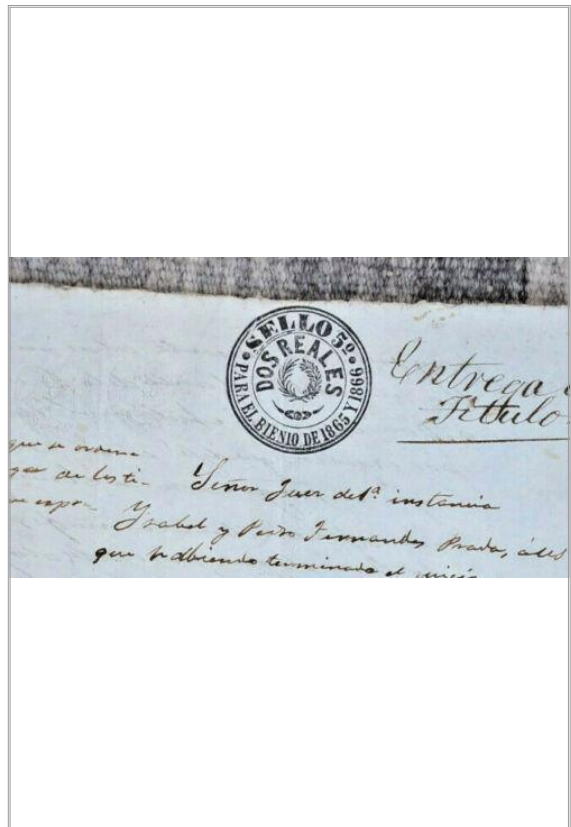 SELLO 5º
DOS REALES
PARA EL BIENIO DE 1865 Y 1866
Entrega
Titulo
que se ordena
Señor Juez del.ª instancia
Ysabel y Pedro Fernandez Prada, á
que habiendo terminado el juicio